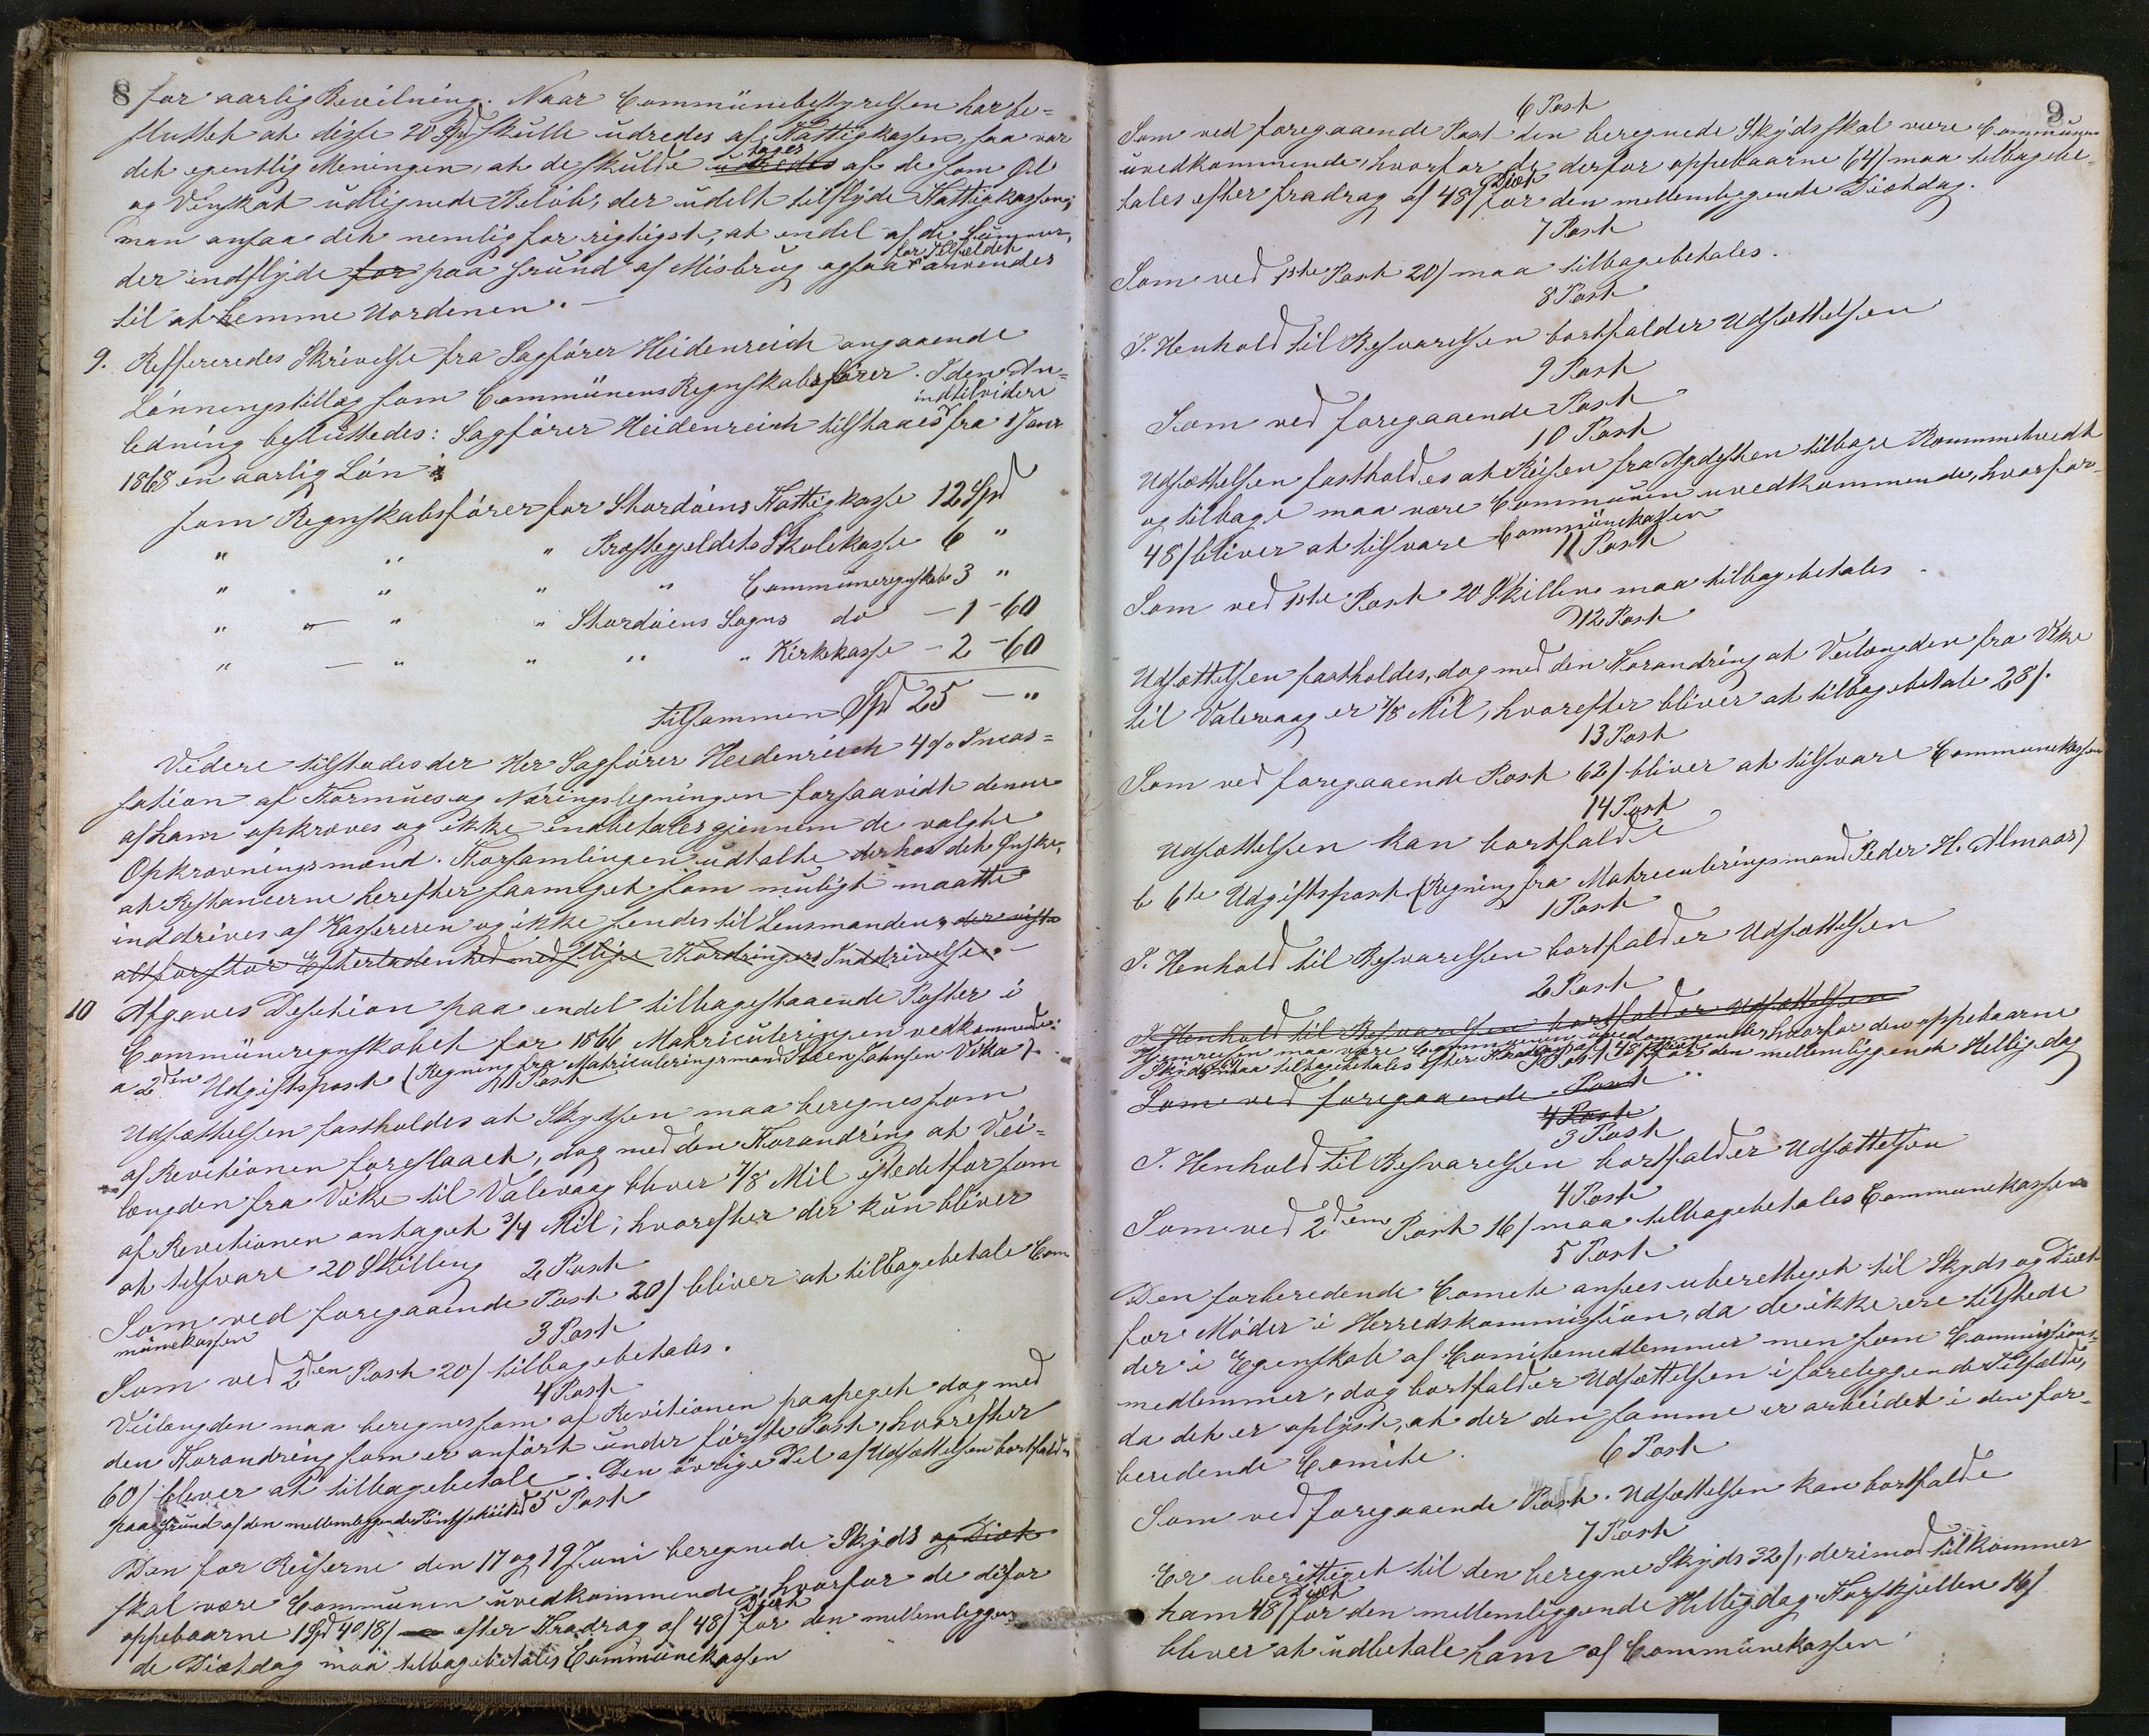 8 for aarlig Bevilning. Naar Commünebestyrelsen har be-
sluttet at disse 20 Spd skulle udredes af Fattigkassen, saa var
det egentlig Meningen, at de skulde udredes tages af de som Øl
og Vinskat udlignede Beløb, der udelt tilflyde Fattigkassen;
man ansaa det nemlig for rigtigst, at endel af de Summer,
der indflyde for paa Grund af Misbrug ogsaa for Tilfældet anvendes
til at hemme Uordenen. —
9. Reffereredes Skrivelse fra Sagfører Heidenreich angaaende
Lønningstillæg som Commünens Regnskabsfører. I den An-
ledning besluttedes: Sagfører Heidenreich tilstaaes indtilvidere fra 1 Janr
1868 en aarlig Løn
som Regnskabsfører for Stordøens Fattigkasse 12 Spd
" " " Præstegjeldets Skolekasse 6 "
" " " " Communeregnskab 3 "
" " " Stordøens Sogns do - 1 - 60
" — " " " " Kirkekasse - 2 - 60
tilsammen Spd 25 — "
Videre tilstodes der Her Sagfører Heidenreich 4 % Incas-
sation af Formues og Næringsligningen forsaavidt denne
af ham opkræves og ikke indbetales gjennem de valgte
Opkrævningsmænd. Forsamlingen udtalte derhos det Ønske,
at Restancerne herefter saameget som muligt maatte
inddrives af Kassereren og ikke sendes til Lensmanden, der viste
altfor stor Efterladenhed med slige Fordringers Inddrivelse. —
10 Afgaves Desition paa endel tilbagestaaende Poster i
Commüneregnskabet for 1866 Matriculeringen vedkommende:
a 2den Udgiftspost (Regning fra Matriculeringsmand Steen Johnsen Vika)
1 Post
Udsættelsen fastholdes at Skydsen maa beregnes som
af Revitionen foreslaaet, dog med den Forandring at Vei-
længden fra Vike til Valevaag bliver 7/8 Mil istedetfor som
af Revitionen antaget 3/4 Mil, hvorefter der kun bliver
at tilsvare 20 Skilling
2 Post
Som ved foregaaende Post 20/ bliver at tilbagebetale Com
münekassen
3 Post
Som ved 2den Post 20/ tilbagebetales.
4 Post
Veilængden maa beregnes som af Revitionen paapeget dog med
den Forandring som er anført under første Post, hvorefter
60/ bliver at tilbagebetale. Den øvrige Del af Udsættelsen bortfalder
paa Grund af den mellemliggende Pintsehøitid
5 Post
Den for Reiserne den 17 og 19 Juni beregnede Skyds og Diæt
skal være Communen uvedkommende, hvorfor de disfor
oppebaarne 1 Spd 4 o 18/ efter Fradrag af 48/ Diæt for den mellemliggen-
de Diætdag maa tilbagebetales Communekassen
9
6 Post
Som ved foregaaende Post den beregnede Skyds skal være Communen
uvedkommende, hvorfor de derfor oppebaarne 64/ maa tilbagebe-
tales efter fradrag af 48/ Diæt for den mellemliggende Diætdag.
7 Post
Som ved 1ste Post 20/ maa tilbagebetales.
8 Post
I Henhold til Besvarelsen bortfalder Udsættelsen
9 Post
Som ved foregaaende Post
10 Post
Udsættelsen fastholdes at Reisen fra Agdesten tilbage Rommetvedt
og tilbage maa være Communen uvedkommende, hvorfor
48/ bliver at tilsvare Communekassen
11 Post
Som ved 1ste Post 20 Skilling maa tilbagebetales
12 Post
Udsættelsen fastholdes, dog med den Forandring at Veilængden fra Vike
til Valevaag er 7/8 Mil, hvorefter bliver at tilbagebetale 28/.
13 Post
Som ved foregaaende Post 62/ bliver at tilsvare Communekassen
14 Post
Udsættelsen kan bortfalde
b 6te Udgiftspost (Regning fra Matriculeringsmand Peder H. Almaas)
1 Post
I Henhold til Besvarelsen bortfalder Udsættelsen
2 Post
I Henhold til Besvarelsen bortfalder Udsættelsen
Hjemreisen maa være Communen uvedkommende, hvorfor den oppebaarne
Skyds maa tilbagebetales efter Fradrag af 48/ Diæt for den mellemliggende Helligdag
3 Post
Som ved foregaaende Post
4 Post
3 Post
I Henhold til Besvarelsen bortfalder Udsættelsen
4 Post
Som ved 2den Post 16/ maa tilbagebetales Communekassen
5 Post
Den forberedende Comite ansees uberettiget til Skyds og Diæt
for Møder i Herredskommission, da de ikke ere tilstede
der i Egenskab af Comitemedlemmer men som Commissions-
medlemmer, dog bortfalder Udsættelsen i foreliggende Tilfælde,
da det er oplyst, at der den samme er arbeidet i den for-
beredende Comite.
6 Post
Som ved foregaaende Post. Udsættelsen kan bortfalde
7 Post
Er uberettiget til den beregne Skyds 32/, derimod tilkommer
ham 48/ Diæt for den mellemliggende Helligdag. Forskjellen 16/
bliver at udbetale ham af Communekassen